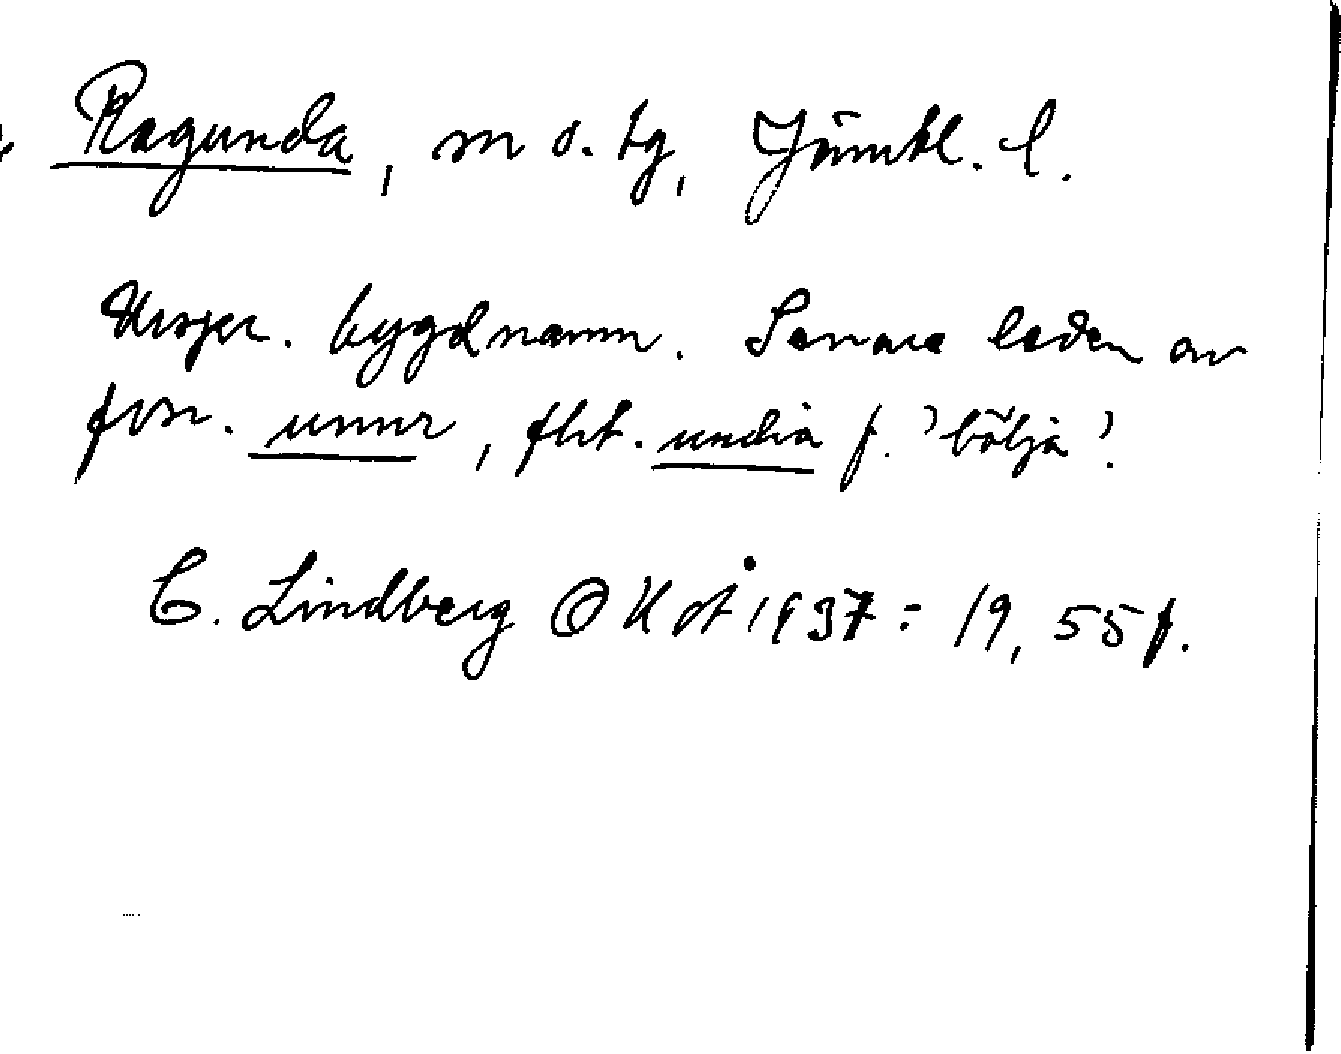 Ragunda, sn o. tg, Jämtl. l.
Urspr. bygdnamn. Senare leden av
fvn. unnr, fht. undia f. 'bölja'.
C. Lindberg OUÅ 1937: 19, 55 f.